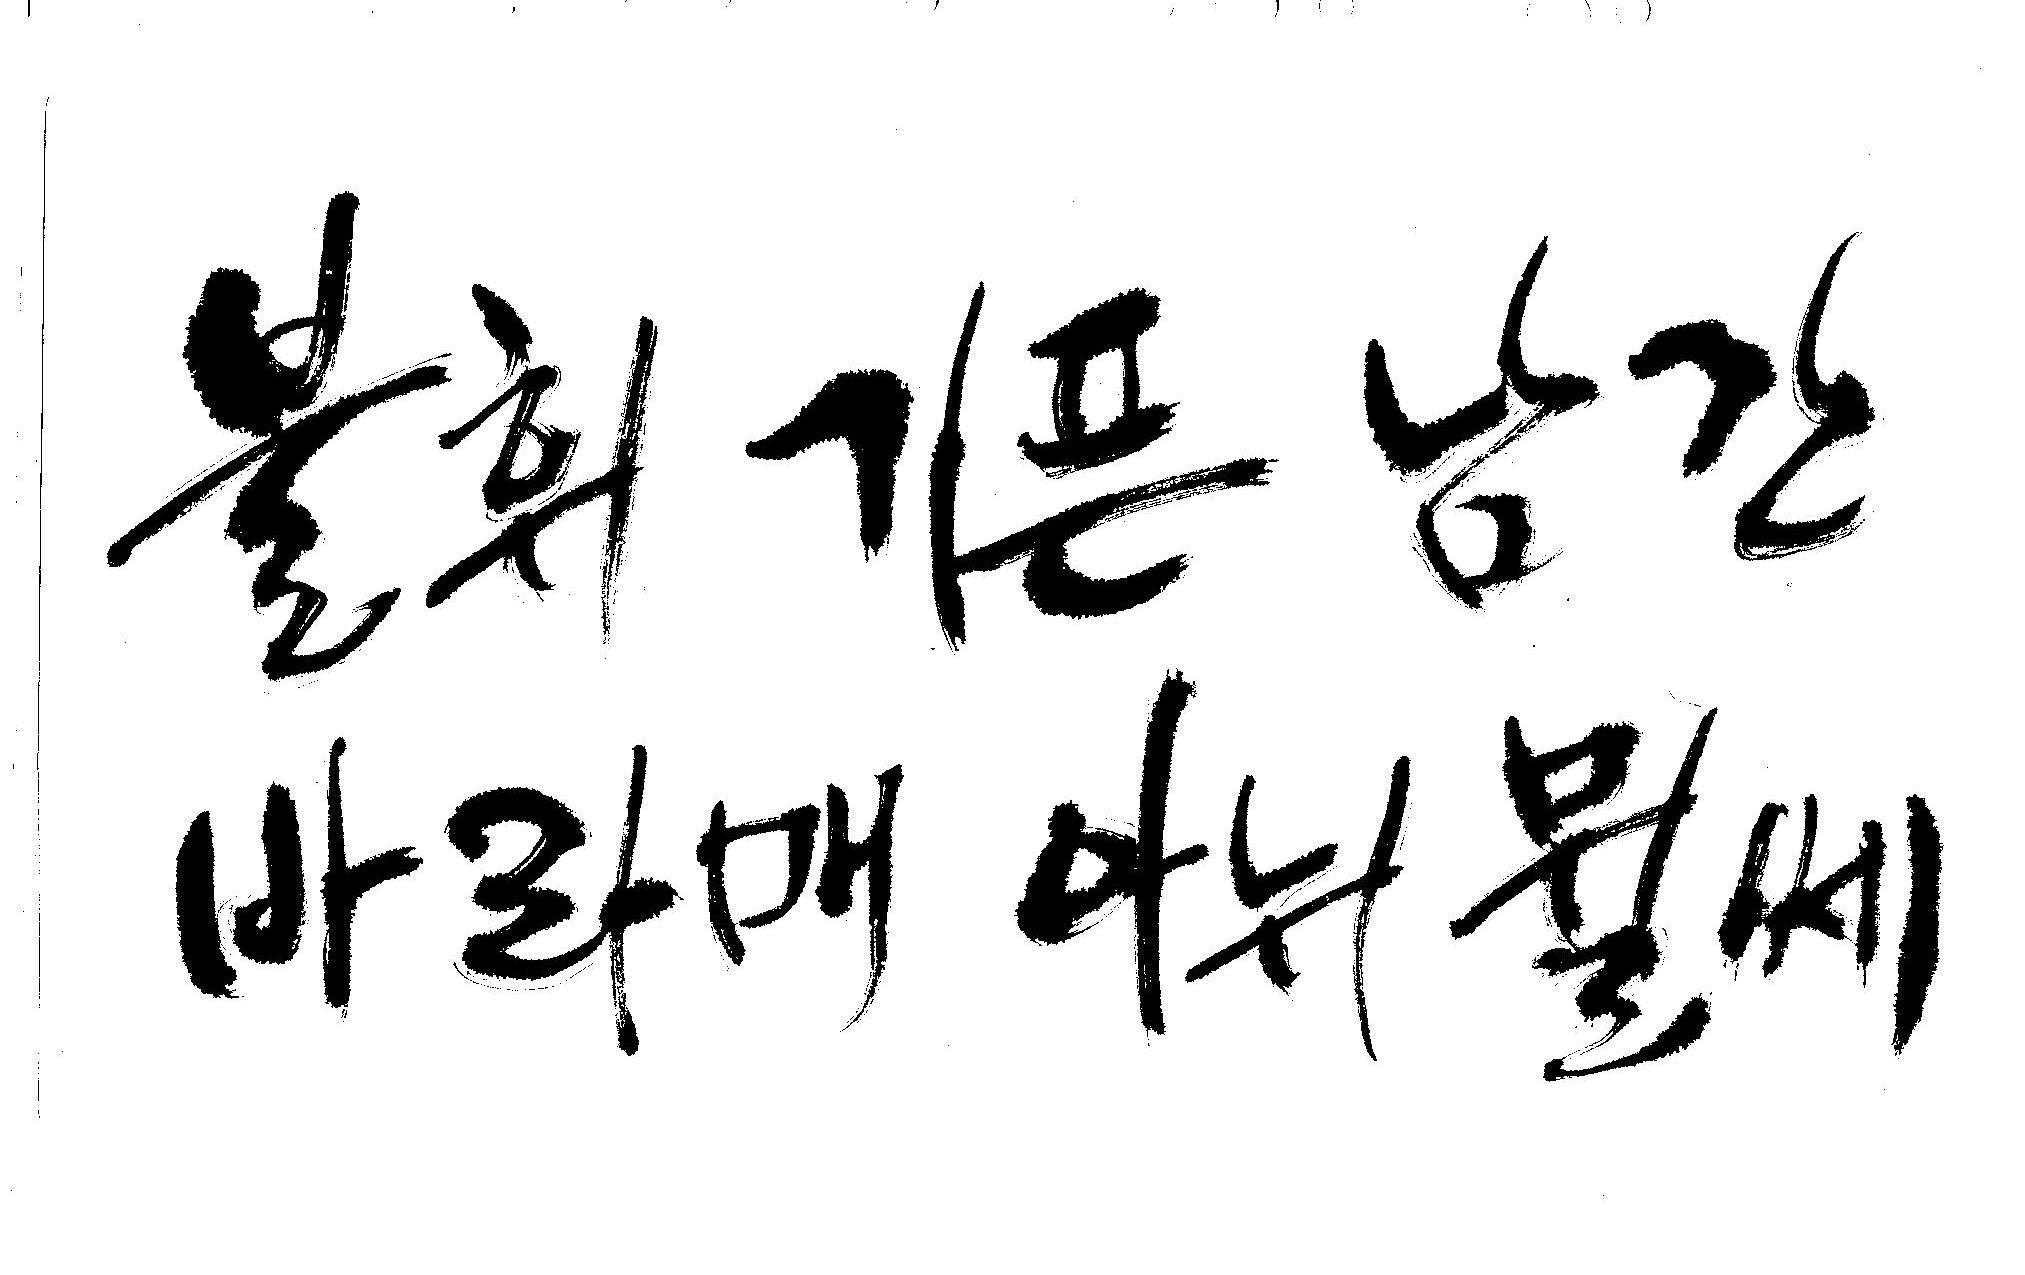 불휘 기픈 남간
바라매 아뉘뮐쎄